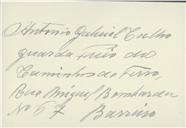 Antonio Gabriel Coelho
guarda freio dos
Caminhos de Ferro,
Rua Miguel Bombarda
Nº 67 Barreiro